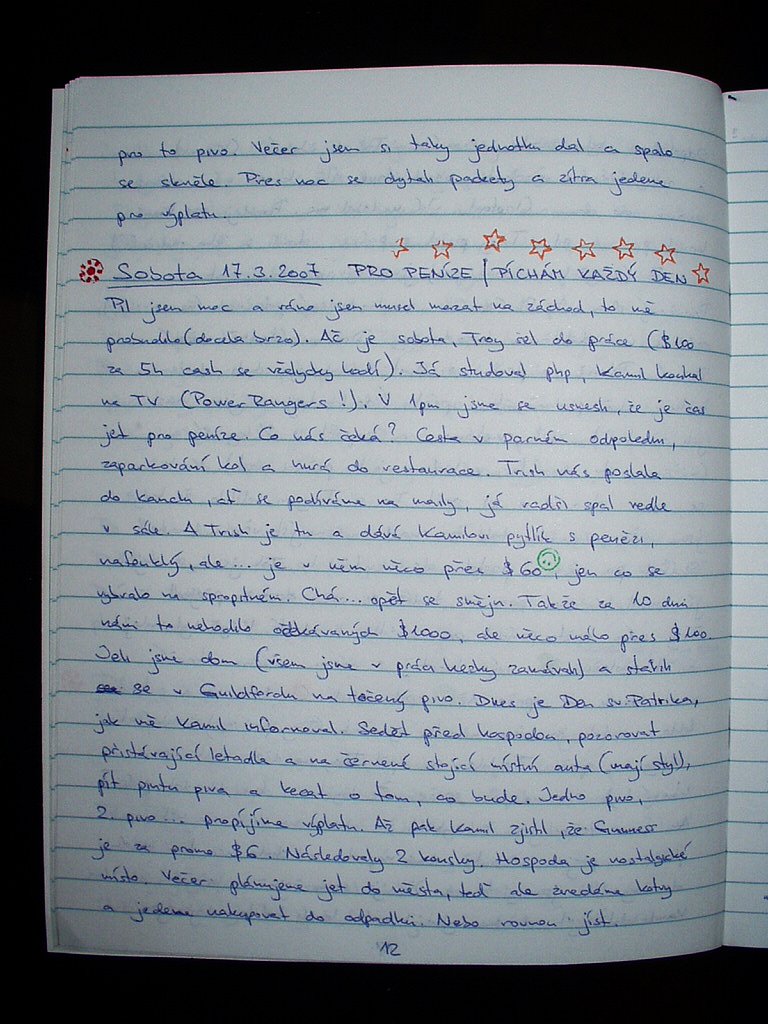 pro to pivo. Večer jsem si taky jednotku dal a spalo
se skvěle. Přes noc se dytali packety a zítra jedeme
pro výplatu.
Sobota 17.3.2007 PRO PENÍZE / PÍCHÁM KAŽDÝ DEN
Pil jsem moc a ráno jsem musel mazat na záchod, to mě
probudilo (docela brzo). Ač je sobota, Troy šel do práce ($100
za 5h cash se vždycky hodí). Já studoval php, Kamil koukal
na TV (Power Rangers !). V 1pm jsme se usnesli, že je čas
jet pro peníze. Co nás čeká? Cesta v parném odpoledni,
zaparkování kol a hurá do restaurace. Trish nás poslala
do kanclu, ať se podíváme na maily, já radši spal vedle
v sále. A Trish je tu a dává Kamilovi pytlík s penězi,
nafouklý, ale... je v něm něco přes $60, jen co se
vybralo na spropitném. Chá... opět se směju. Takže za 10 dnů
nám to nehodilo očekávaných $1000, ale něco málo přes $100.
Jeli jsme dom (všem jsme v práci hezky zamávali) a stavili
se v Guildfordu na točený pivo. Dnes je Den sv. Patrika,
jak mě Kamil informoval. Sedět před hospodou, pozorovat
přistávající letadla a na červené stojící místní auta (mají styl),
pít pintu piva a kecat o tom, co bude. Jedno pivo,
2. pivo... propíjíme výplatu. Až pak Kamil zjistil, že Guinness
je za promo $6. Následovaly 2 kousky. Hospoda je nostalgické
místo. Večer plánujeme jet do města, teď ale zvedáme kotvy
a jedeme nakupovat do odpadků. Nebo rovnou jíst.
12